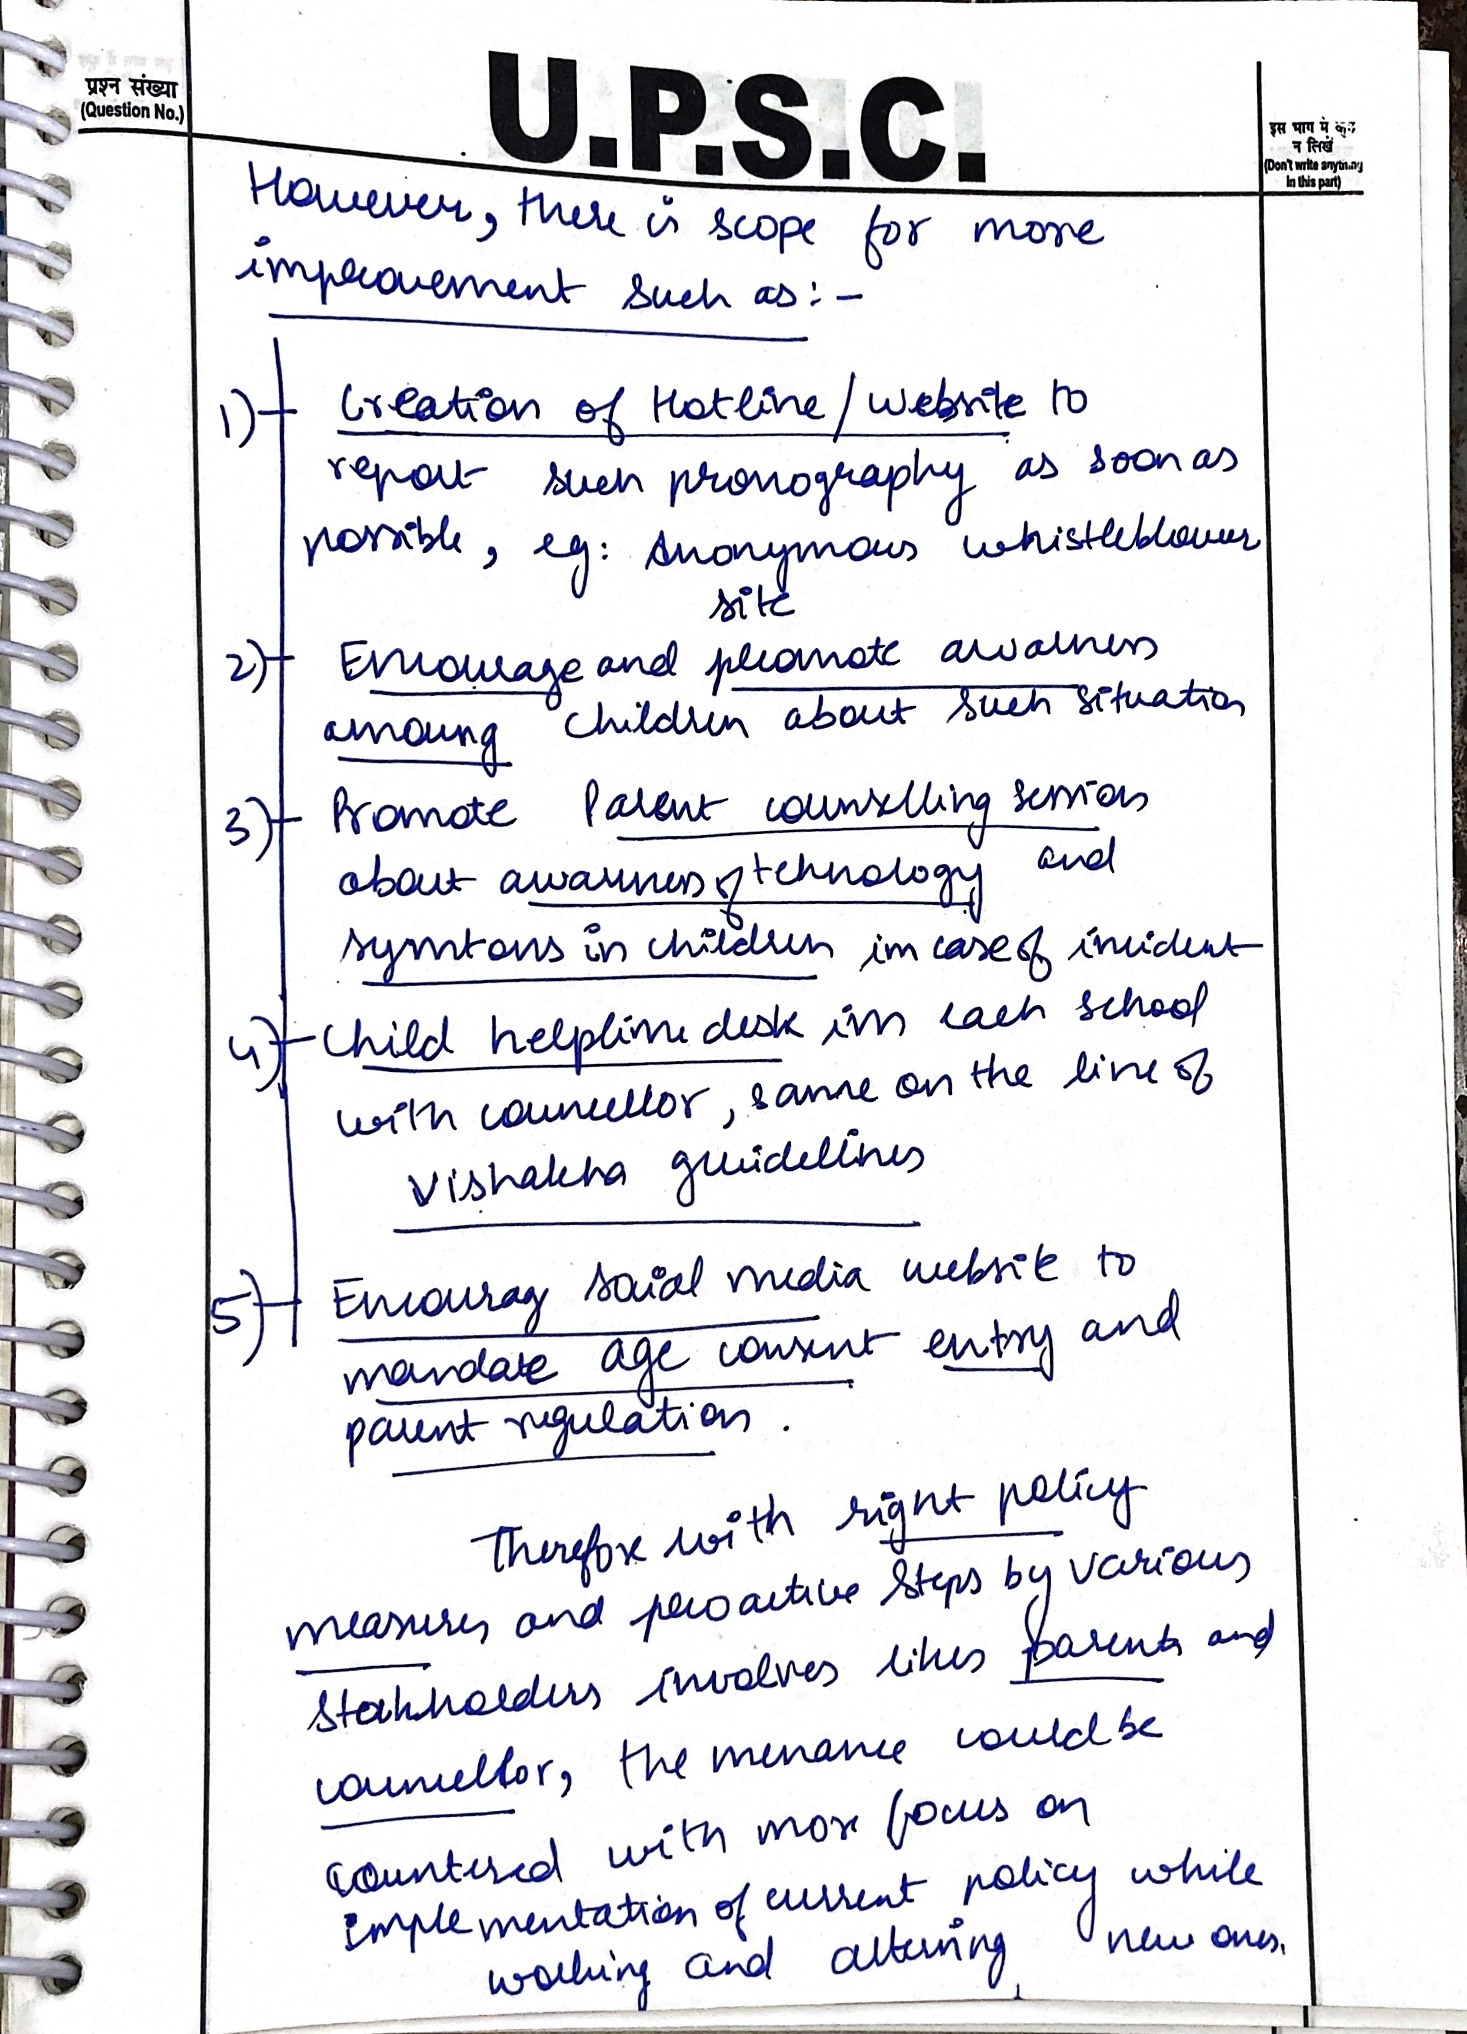 प्रश्न संख्या
(Question No.)
U.P.S.C.
इस भाग में कुछ
न लिखें
(Don't write anything
in this part)
However, there is scope for more
improvement such as:-
1) Creation of Hotline/website to
report such pronography as soon as
possible, eg: Anonymous whistleblower
site
2) Encourage and promote awarness
amoung children about such situation
3) Promote Parent counselling session
about awarness of tehnology and
symtons in children in case of incident
4) Child helpline desk in each school
with councellor, same on the line of
Vishakha guidellines
5) Encourag social media website to
mandate age consent entry and
parent regulation.
Therefore with right policy
measures and proactive steps by various
stakholders involves likes parents and
councellor, the menance could be
countered with more focus on
implementation of current policy while
working and altering new ones.